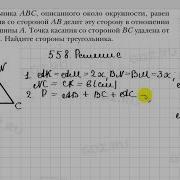 ьника ABC, описанного около окружности, равен
ия со стороной AB делит эту сторону в отношении
шины A. Точка касания со стороной BC удалена от
. Найдите стороны треугольника.
N
C
558. Решение
1. AK = AM = 2x, BN = BM = 3x,
NC = CK = 6 (см)
2. P = AB + BC + AC